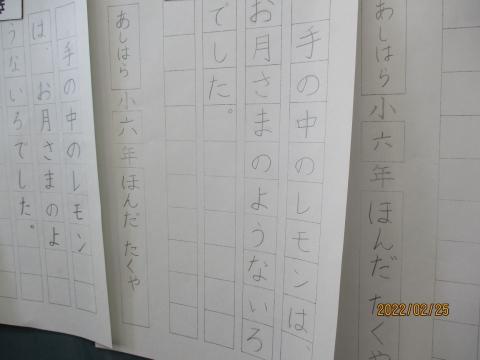 あしはら小六年ほんだ たくや
手の中のレモンは、
お月さまのようないろ
でした。
あしはら小六年ほんだ たくや
手の中のレモン
は、お月さまのよ
うないろでした。
2022/02/25